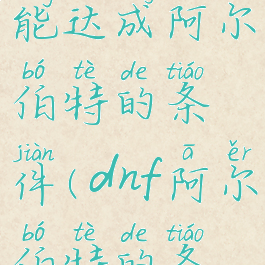 能达成阿尔
bó tè de tiáo
伯特的条
jiàn ā ěr
件(dnf阿尔
bó tè de tiáo
伯特的条